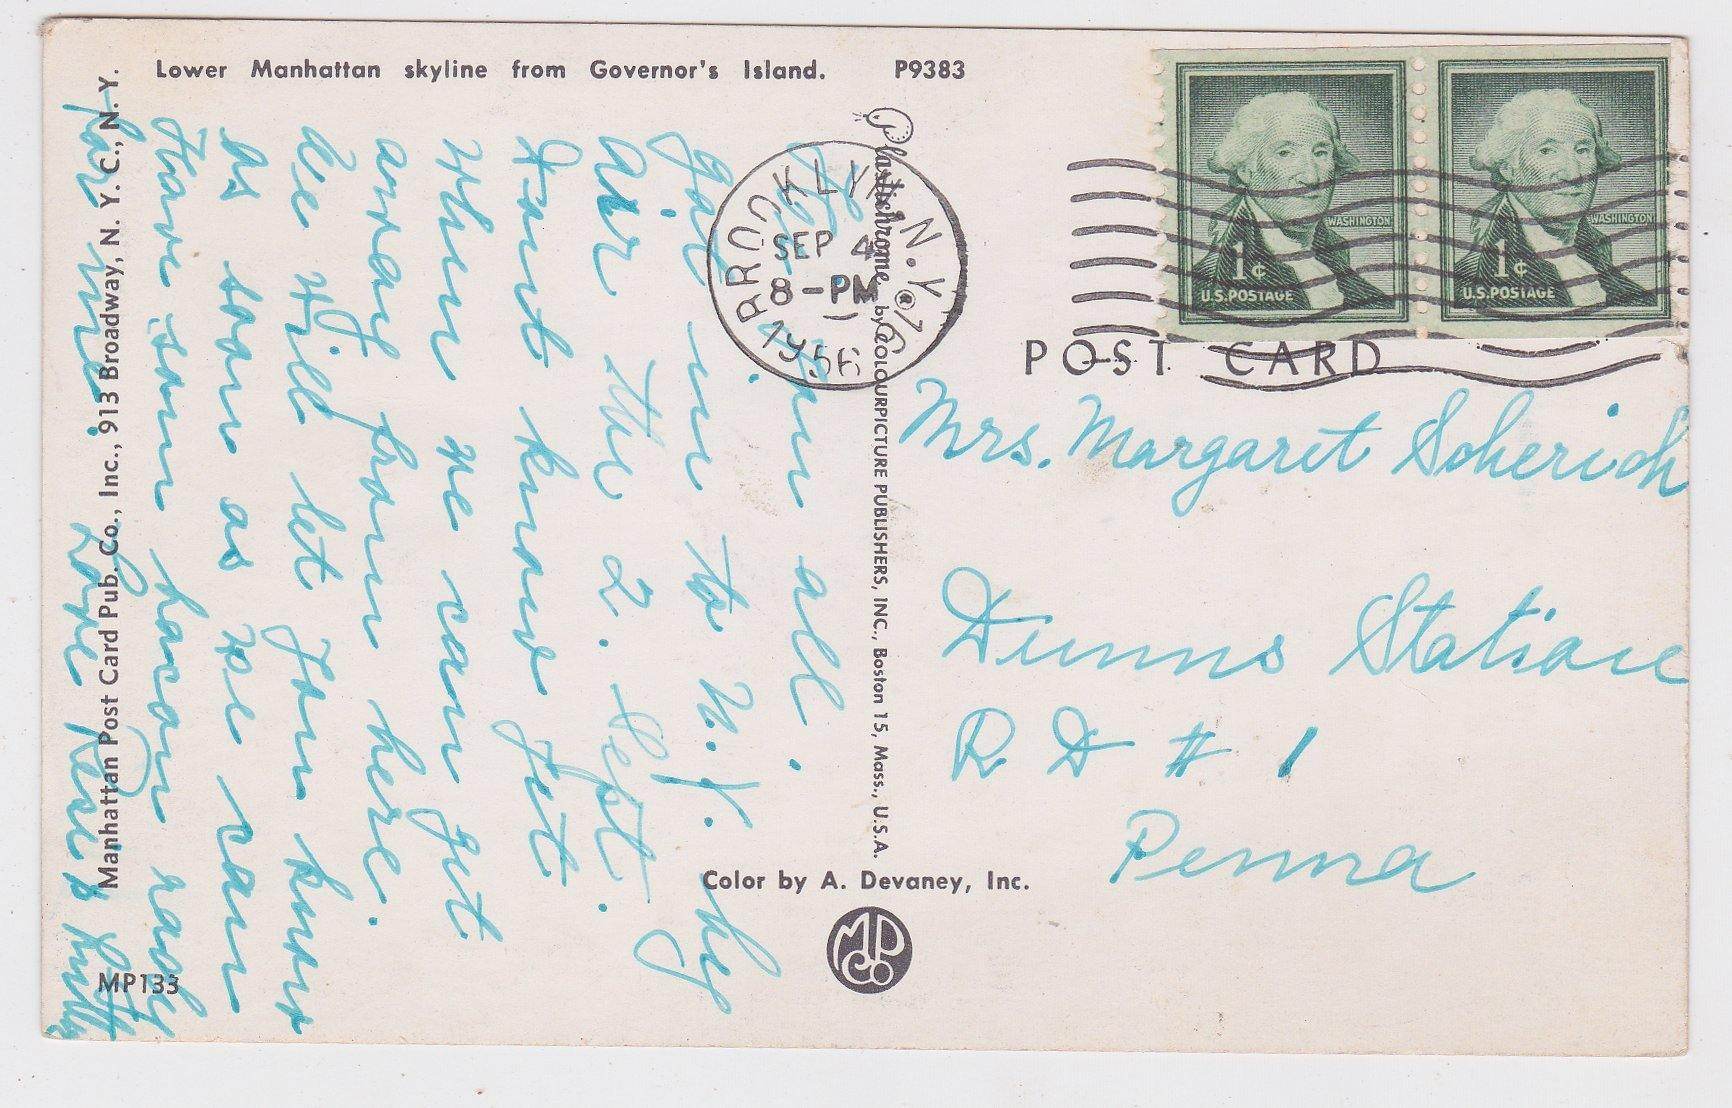 Lower Manhattan skyline from Governor's Island. P9383
Hi you all.
got in to N.Y. by
Air the 2. Sept.
Dont know Jit
When we can get
away from here.
We Will let You know
as soon as We can
Have som bacon rady
for me. Love
Manhattan Post Card Pub. Co., Inc., 913 Broadway, N. Y. C., N. Y.
MP133
Plastichrome by COLOURPICTURE PUBLISHERS, INC., Boston 15, Mass., U.S.A.
BROOKLYN, N.Y.
SEP 4
8-PM
1956
WASHINGTON
1¢
U.S. POSTAGE
WASHINGTON
1¢
U.S. POSTAGE
POST CARD
Mrs. Margaret Scherich
Dunns Station
R D # 1
Penna
Color by A. Devaney, Inc.
MPCo